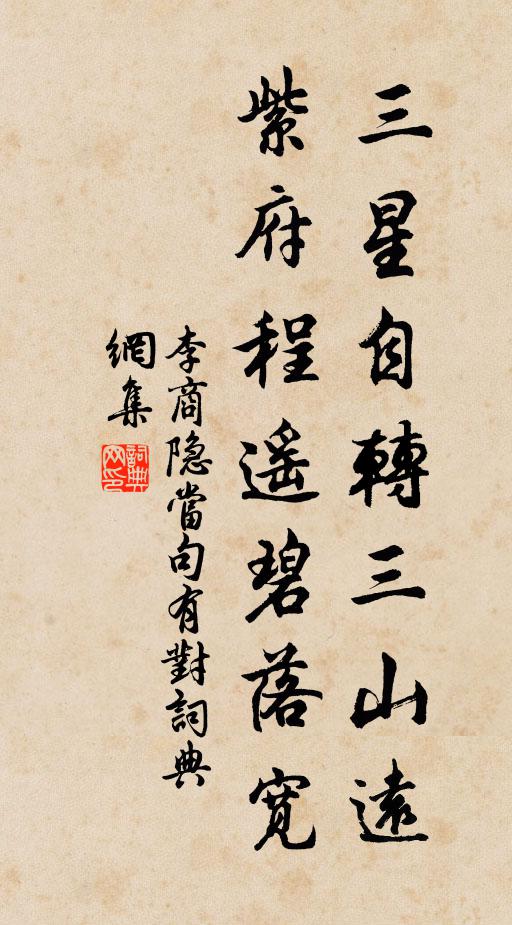 三星自轉三山遠
紫府程遥碧落寬
李商隐當句有對詞典
網集
詞典网印